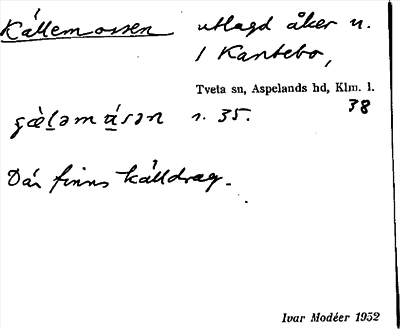 Källemossen utlagd åker n.
i Kantebo,
Tveta sn, Aspelands hd, Klm. l.
38
n. 35.
Där finns källdrag.
Ivar Modéer 1952